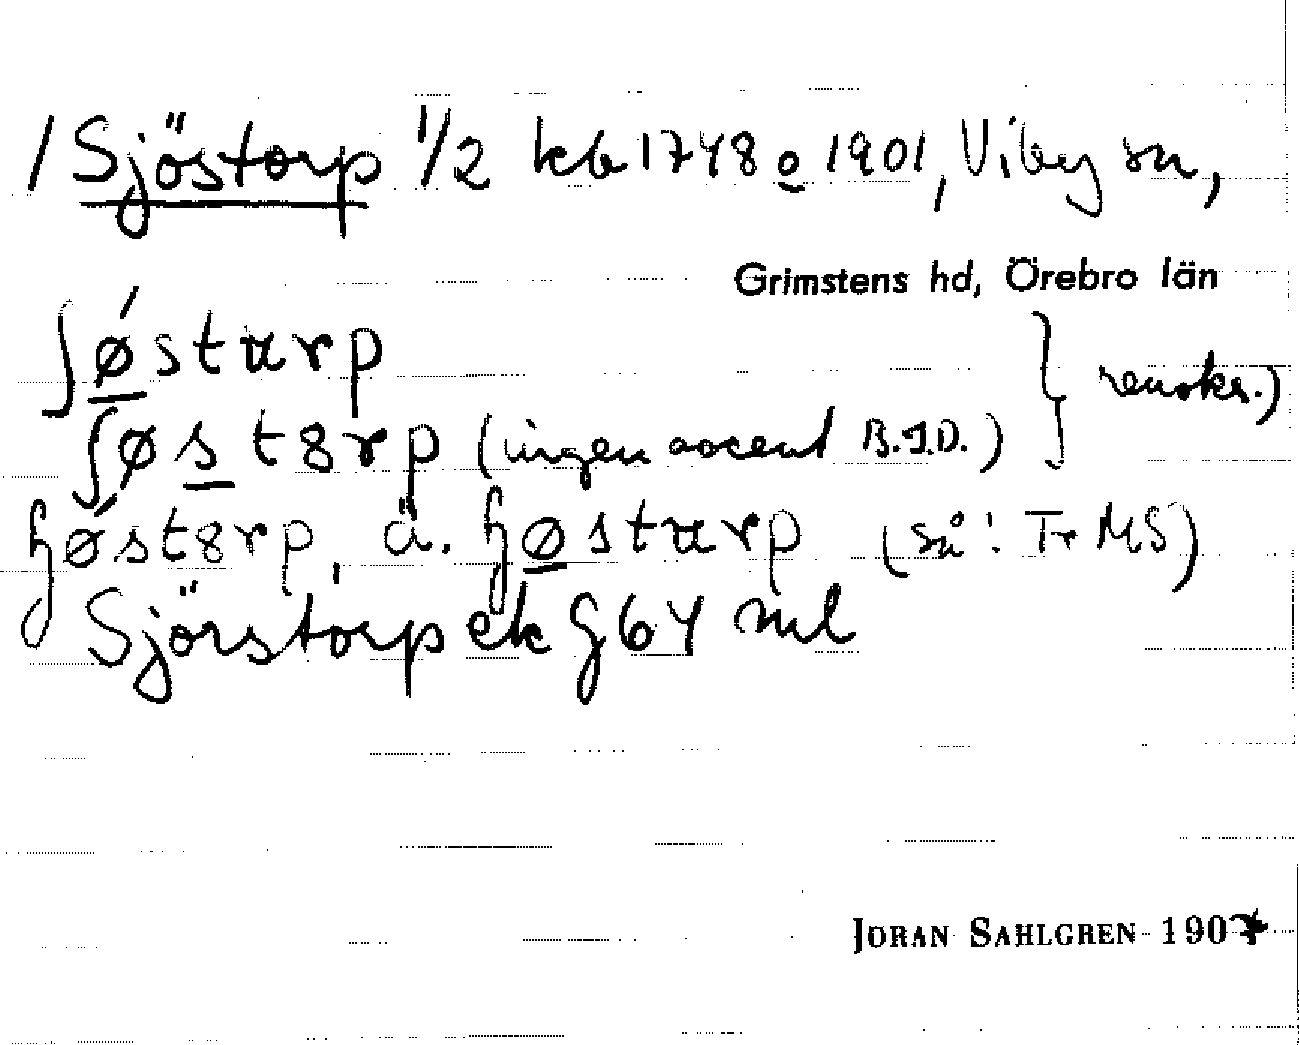 / Sjöstorp 1/2 kb 1748 o 1901, Viby sn,
Grimstens hd, Örebro län
ʃǿstɯrp
ʃøst8rp (ingen accent B.I.D.) } renskr.)
ɧǿst8rp, ä. ɧøstɯrp (så! Tr MS)
Sjörstorp ek G 64 ml
JORAN SAHLGREN 1907